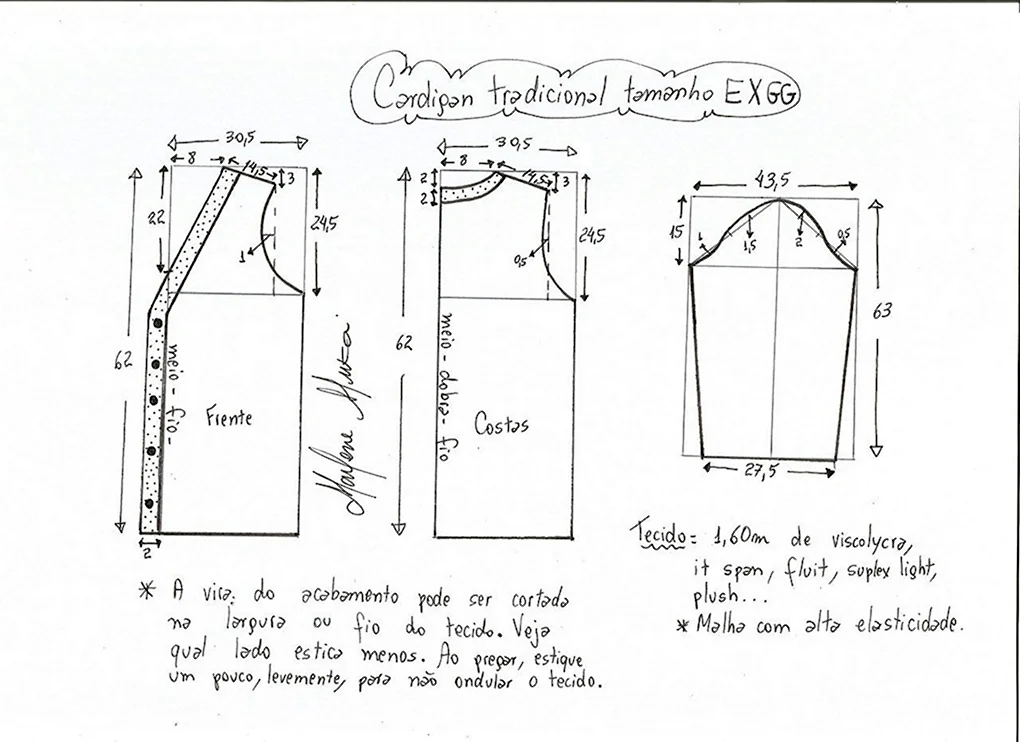 Cardigan tradicional tamanho EXGG
30,5
8
14,5
3
22
24,5
1
62
meio - fio -
Frente
2
Marlene Mukai
30,5
8
14,5
3
2
2
24,5
0,5
62
meio - dobra - fio
Costas
43,5
15
1
1,5
2
0,5
63
27,5
Tecido = 1,60m de viscolycra,
it span, fluit, suplex light,
plush...
* Malha com alta elasticidade.
* A vira. do acabamento pode ser cortada
na largura ou fio do tecido. Veja
qual lado estica menos. Ao pregar, estique
um pouco, levemente, para não ondular o tecido.